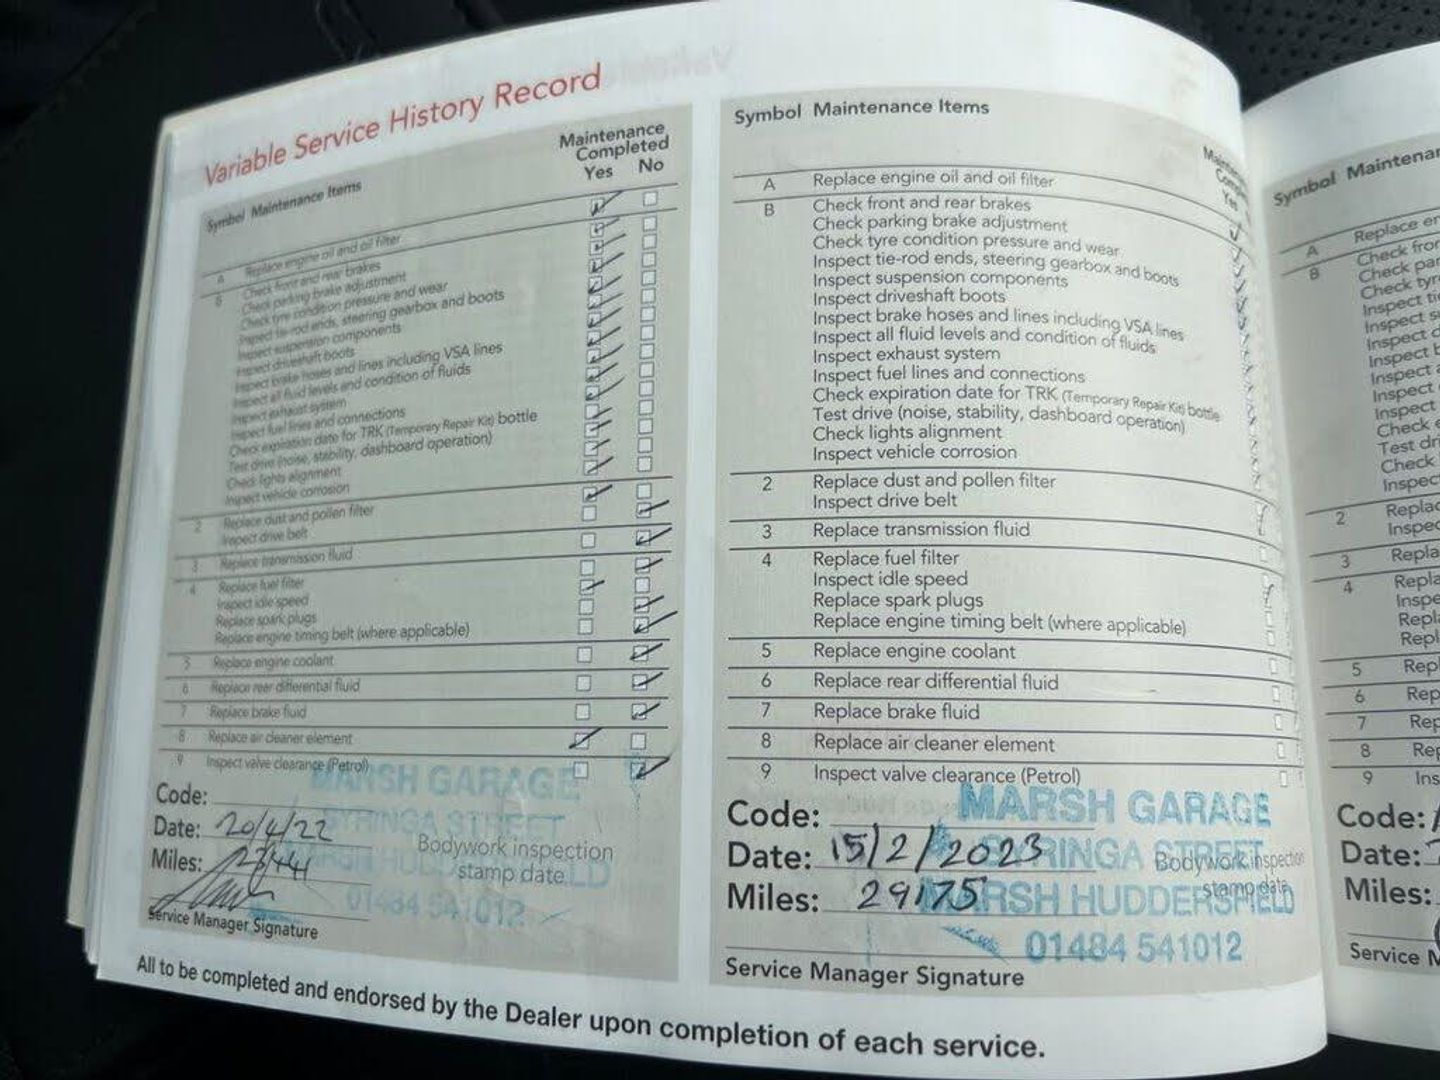 Variable Service History Record
Symbol Maintenance Items
Maintenance
Completed
Yes No
A Replace engine oil and oil filter
B Check front and rear brakes
Check parking brake adjustment
Check tyre condition pressure and wear
Inspect tie-rod ends, steering gearbox and boots
Inspect suspension components
Inspect driveshaft boots
Inspect brake hoses and lines including VSA lines
Inspect all fluid levels and condition of fluids
Inspect exhaust system
Inspect fuel lines and connections
Check expiration date for TRK (Temporary Repair Kit) bottle
Test drive (noise, stability, dashboard operation)
Check lights alignment
Inspect vehicle corrosion
2 Replace dust and pollen filter
Inspect drive belt
3 Replace transmission fluid
4 Replace fuel filter
Inspect idle speed
Replace spark plugs
Replace engine timing belt (where applicable)
5 Replace engine coolant
6 Replace rear differential fluid
7 Replace brake fluid
8 Replace air cleaner element
9 Inspect valve clearance (Petrol)
MARSH GARAGE
SYRINGA STREET
MARSH HUDDERSFIELD
01484 541012
Code:
Date: 20/4/22
Miles:
Bodywork inspection
stamp date
Service Manager Signature
Symbol Maintenance Items
Yes
A Replace engine oil and oil filter
B Check front and rear brakes
Check parking brake adjustment
Check tyre condition pressure and wear
Inspect tie-rod ends, steering gearbox and boots
Inspect suspension components
Inspect driveshaft boots
Inspect brake hoses and lines including VSA lines
Inspect all fluid levels and condition of fluids
Inspect exhaust system
Inspect fuel lines and connections
Check expiration date for TRK (Temporary Repair Kit) bottle
Test drive (noise, stability, dashboard operation)
Check lights alignment
Inspect vehicle corrosion
2 Replace dust and pollen filter
Inspect drive belt
3 Replace transmission fluid
4 Replace fuel filter
Inspect idle speed
Replace spark plugs
Replace engine timing belt (where applicable)
5 Replace engine coolant
6 Replace rear differential fluid
7 Replace brake fluid
8 Replace air cleaner element
9 Inspect valve clearance (Petrol)
MARSH GARAGE
SYRINGA STREET
MARSH HUDDERSFIELD
01484 541012
Code:
Date: 15/2/2023
Miles: 29175
Bodywork inspection
stamp date
Service Manager Signature
All to be completed and endorsed by the Dealer upon completion of each service.
Symbol
A Replace
B Check
Check
Check
Inspect
Inspect
Inspect
Inspect
Inspect
Inspect
Inspect
Check
Test
Check
Inspect
2
3
4
5
6
7
8
9
Code:
Date:
Miles:
Service